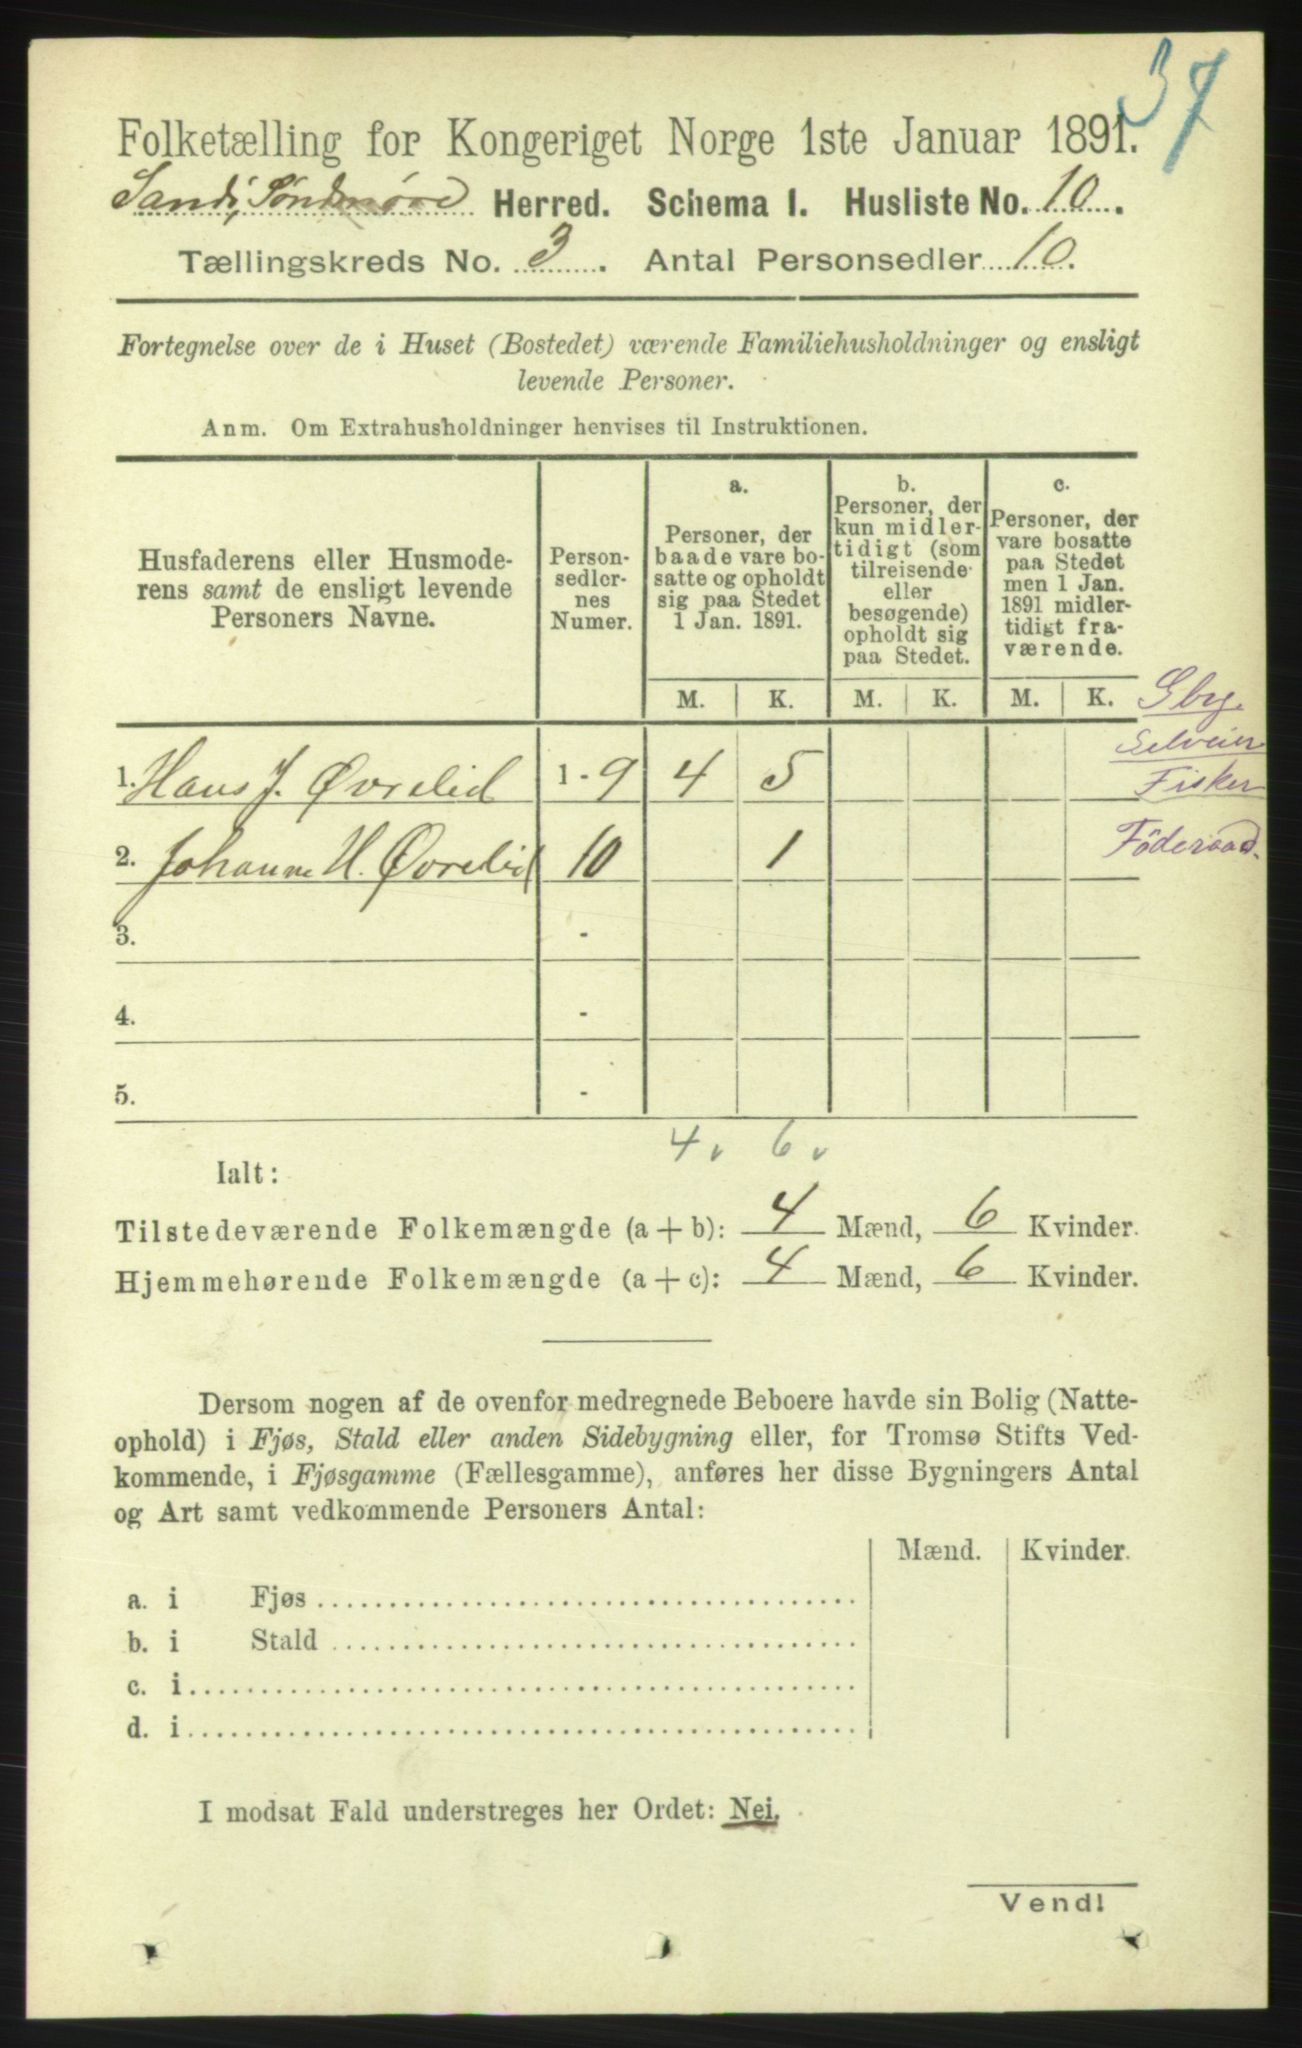 37
Folketælling for Kongeriget Norge 1ste Januar 1891.
Sande, Søndmøre Herred. Schema I. Husliste No. 10.
Tællingskreds No. 3. Antal Personsedler 10.
Fortegnelse over de i Huset (Bostedet) værende Familiehusholdninger og ensligt
levende Personer.
Anm. Om Extrahusholdninger henvises til Instruktionen.
Husfaderens eller Husmode-
rens samt de ensligt levende
Personers Navne.
Person-
sedler-
nes
Numer.
a.
Personer, der
baade vare bo-
satte og opholdt
sig paa Stedet
1 Jan. 1891.
b.
Personer, der
kun midler-
tidigt (som
tilreisende
eller
besøgende)
opholdt sig
paa Stedet.
c.
Personer, der
vare bosatte
paa Stedet
men 1 Jan.
1891 midler-
tidigt fra-
værende.
M. K. M. K. M. K.
Gbr.
Selveier
Fisker
1. Hans J. Øvrelid 1 - 9 4 5
2. Johanne H. Øvrelid 10 1 Föderaad.
3. -
4. -
5. -
4 v 6 v
Ialt:
Tilstedeværende Folkemængde (a + b): 4 Mænd, 6 Kvinder.
Hjemmehørende Folkemængde (a + c): 4 Mænd, 6 Kvinder.
Dersom nogen af de ovenfor medregnede Beboere havde sin Bolig (Natte-
ophold) i Fjøs, Stald eller anden Sidebygning eller, for Tromsø Stifts Ved-
kommende, i Fjøsgamme (Fællesgamme), anføres her disse Bygningers Antal
og Art samt vedkommende Personers Antal:
Mænd. Kvinder.
a. i Fjøs
b. i Stald
c. i
d. i
I modsat Fald understreges her Ordet: Nei.
Vend!